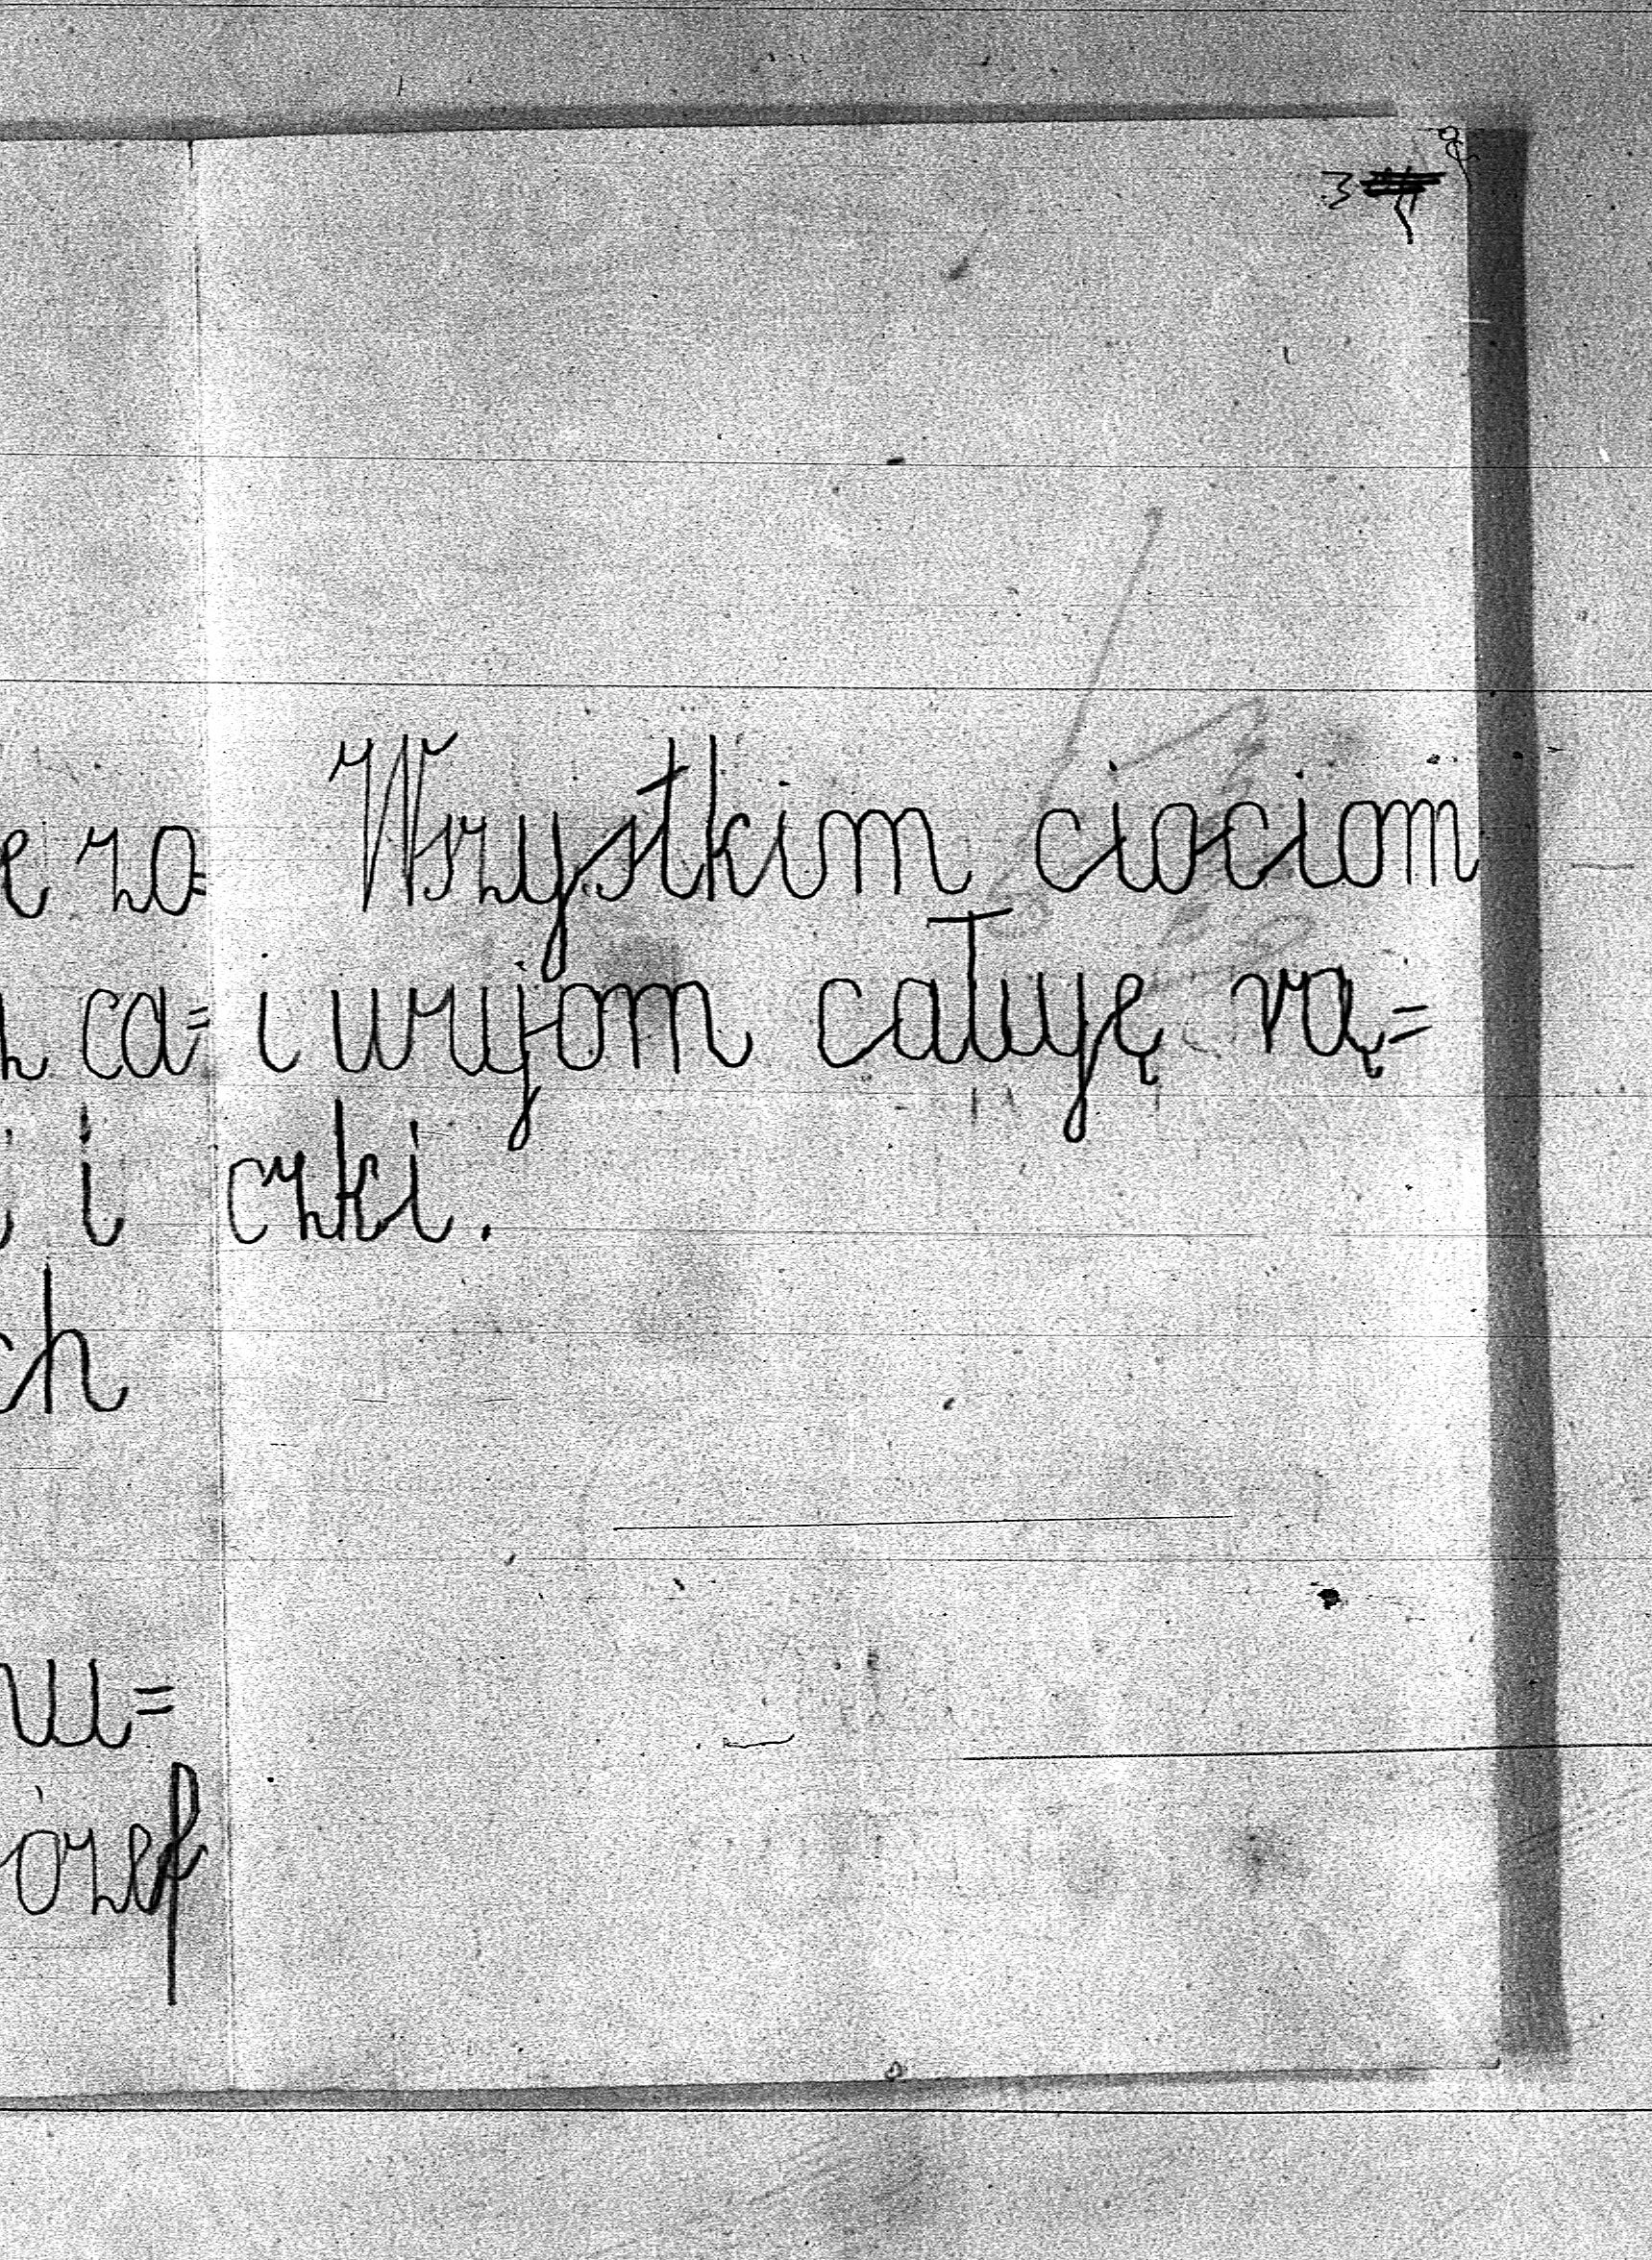 3
Wszystkim ciociom
i wujom całuję rą=
czki.
zo=
ca=
i
ch
=
ózef